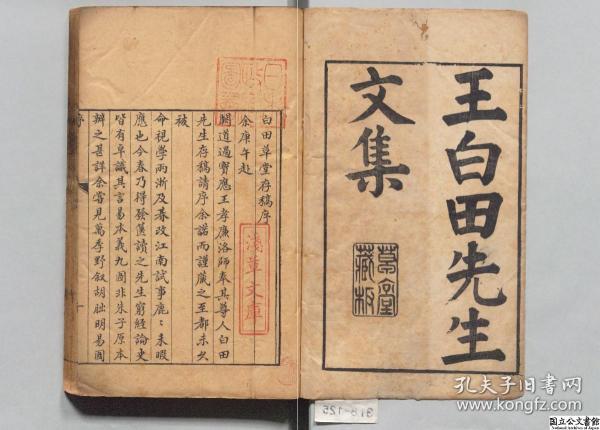 王白田先生
文集
草堂
藏板
白田草堂存稿序
余庚午赴
闕道過寶應王孝廉洛師奉其尊人白田
先生存稿請序余諾而謹藏之至都未久
被
命視學兩浙及春改江南試事鹿鹿未暇
應也今春乃得發篋讀之先生窮經論史
皆有卓識其言易本義九圖非朱子原本
辨之甚詳余嘗見萬季野叙胡朏明易圖
序
淺草文庫
日本
圖
318-125
孔夫子旧书网
www.kongfz.com
国立公文書館
National Archives of Japan